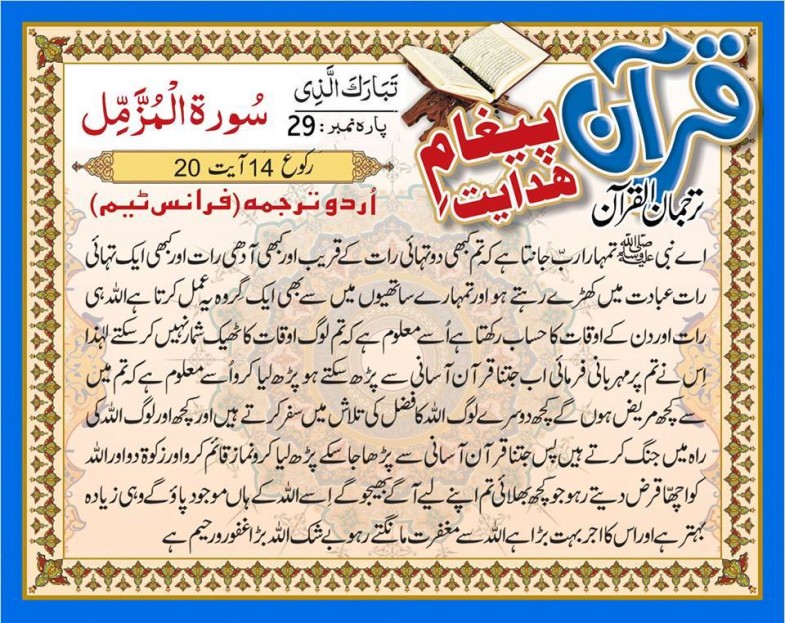 قرآن
پیغامِ
ھدایت
ترجمان القرآن
تَبَارَكَ الَّذِی
پارہ نمبر: 29
سُورة الْمُزَّمِّل
رکوع 14 آیت 20
اُردو ترجمہ (فرانس ٹیم)
اے نبی ﷺ تمہارا ربّ جانتا ہے کہ تم کبھی دو تہائی رات کے قریب اور کبھی آدھی رات اور کبھی ایک تہائی
رات عبادت میں کھڑے رہتے ہو اور تمہارے ساتھیوں میں سے بھی ایک گروہ یہ عمل کرتا ہے اللہ ہی
رات اور دن کے اوقات کا حساب رکھتا ہے اُسے معلوم ہے کہ تم لوگ اوقات کا ٹھیک شمار نہیں کر سکتے لہٰذا
اِس نے تم پر مہربانی فرمائی اب جتنا قرآن آسانی سے پڑھ سکتے ہو پڑھ لیا کرو اُسے معلوم ہے کہ تم میں
سے کچھ مریض ہوں گے کچھ دوسرے لوگ اللہ کا فضل کی تلاش میں سفر کرتے ہیں اور کچھ اور لوگ اللہ کی
راہ میں جنگ کرتے ہیں پس جتنا قرآن آسانی سے پڑھا جا سکے پڑھ لیا کرو نماز قائم کرو اور زکوة دو اور اللہ
کو اچھّا قرض دیتے رہو جو کچھ بھلائی تم اپنے لیے آگے بھیجو گے اِسے اللہ کے ہاں موجود پاؤ گے وہی زیادہ
بہتر ہے اور اس کا اجر بہت بڑا ہے اللہ سے مغفرت مانگتے رہو بے شک اللہ بڑا غفور و رحیم ہے